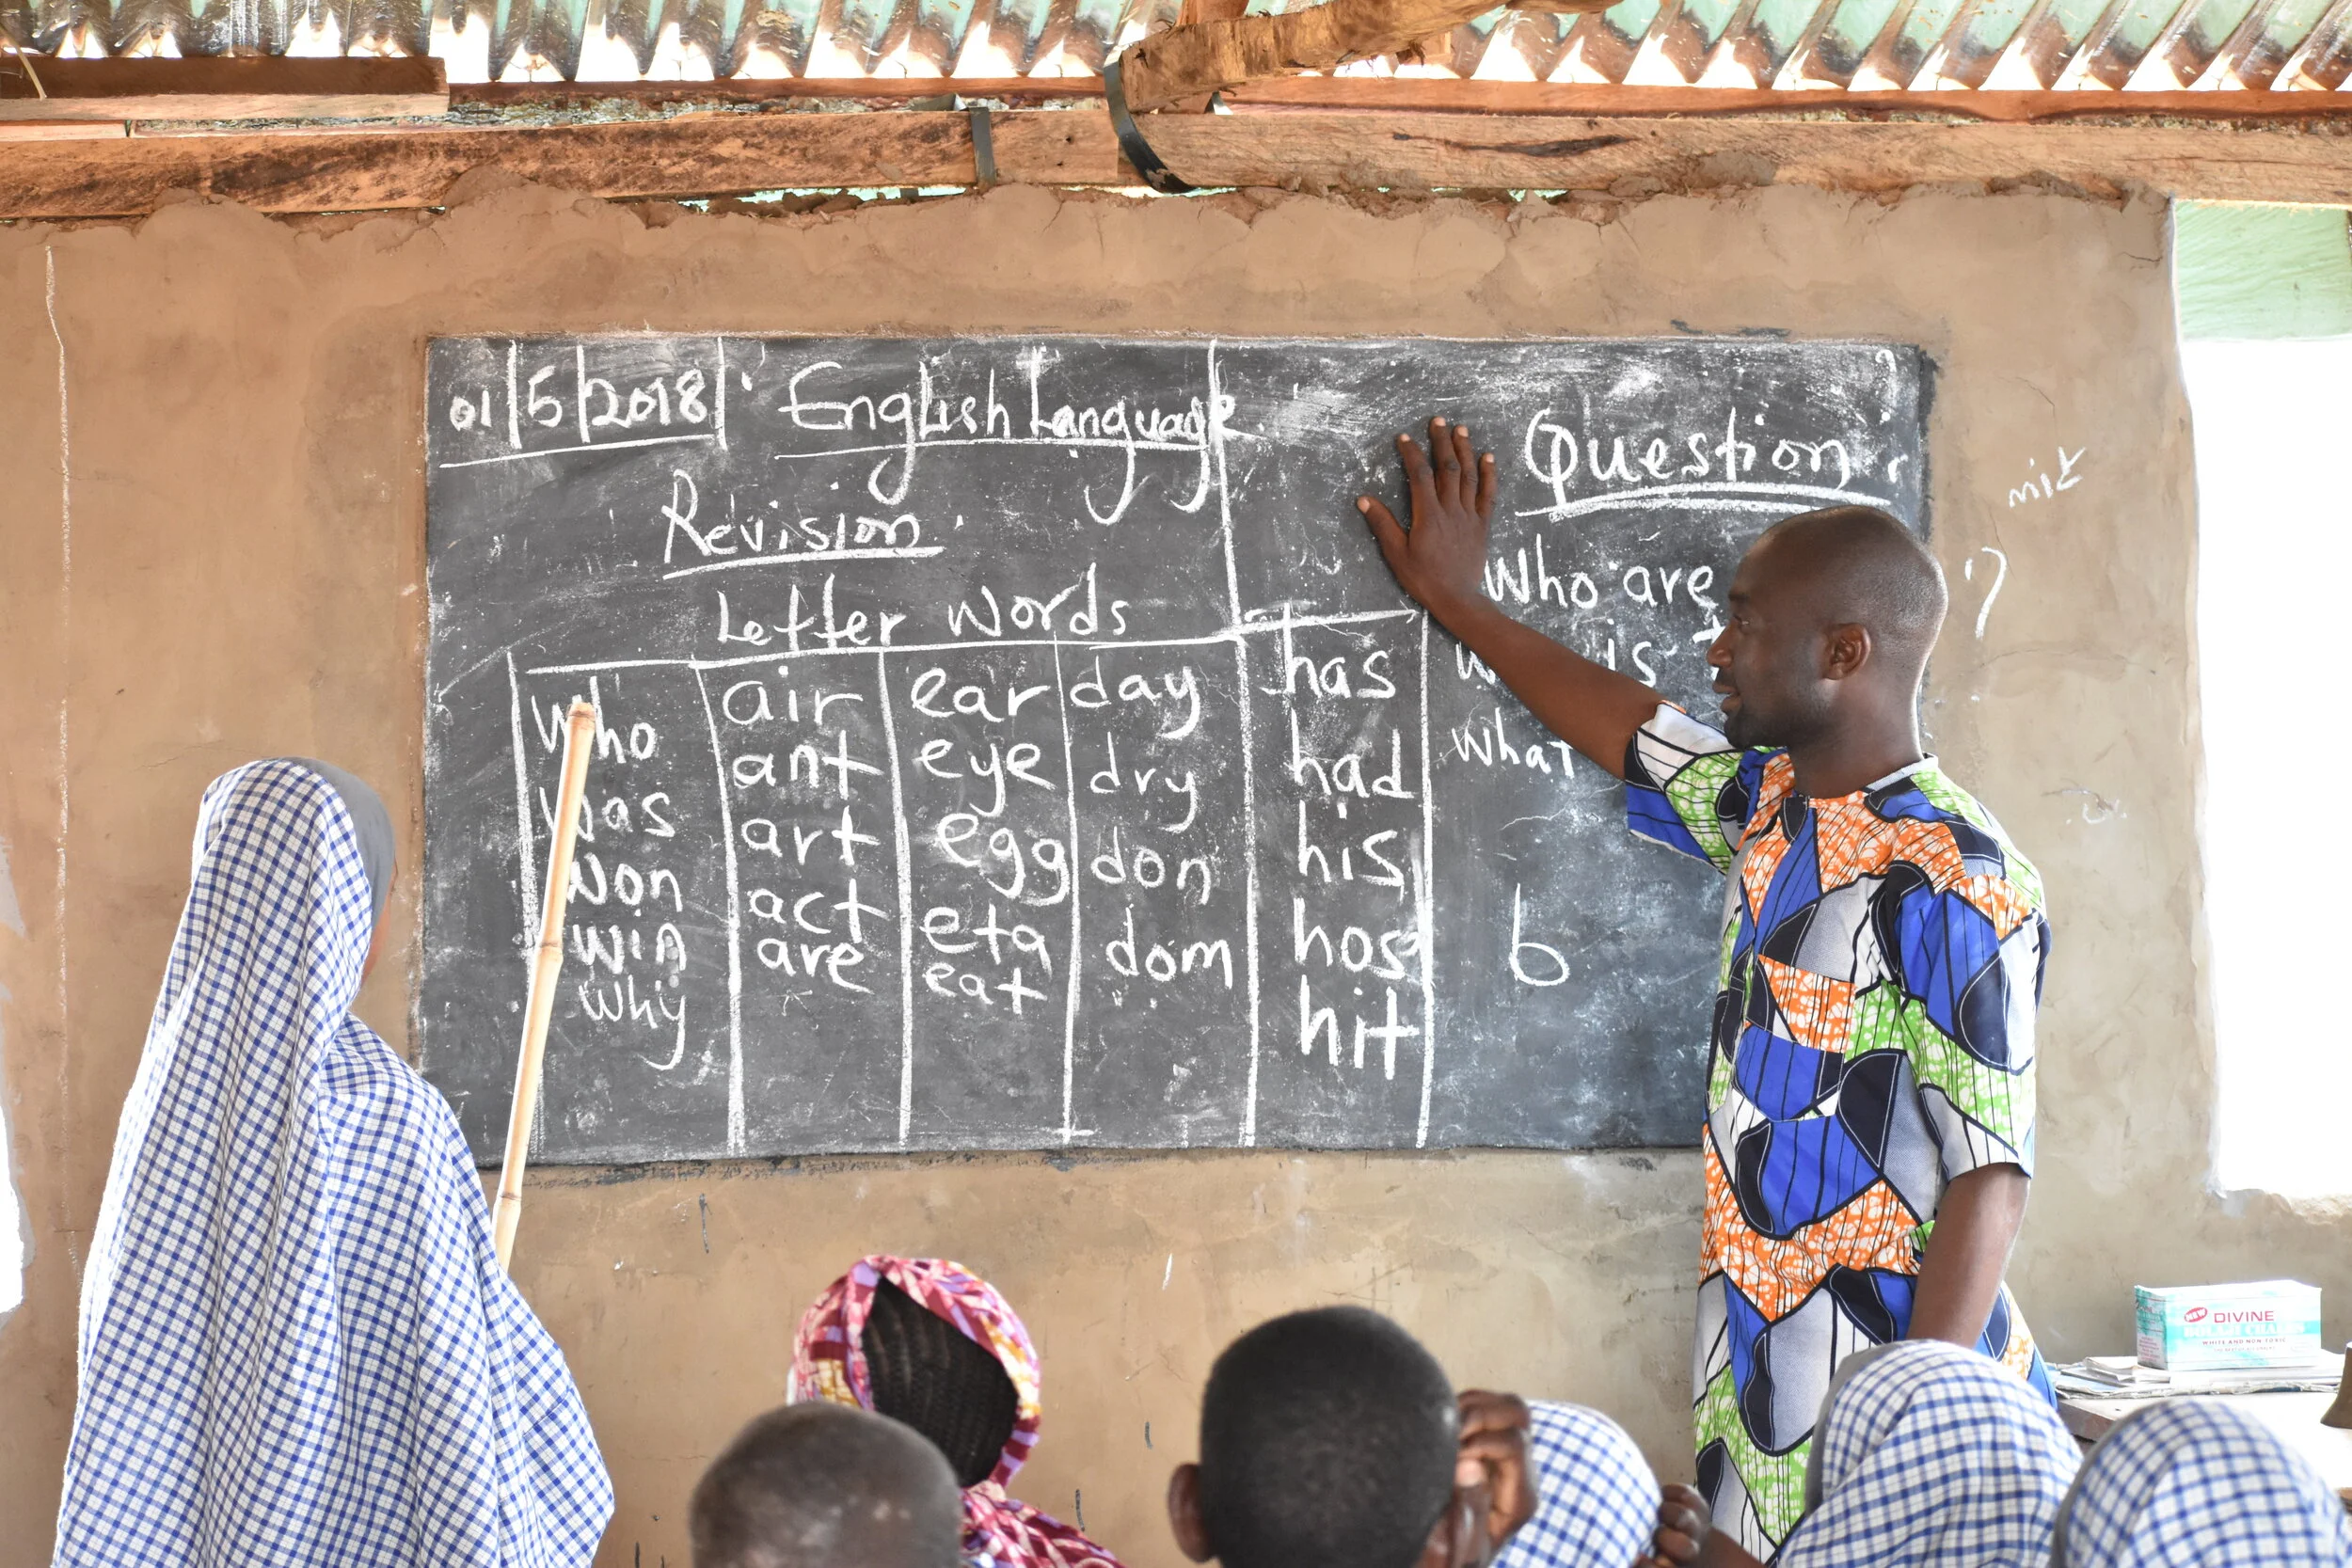 01/5/2018 English Language.
Revision.
Letter words
who air ear day has
was ant eye dry had
won art egg don his
win act eta dom hos
why are eat hit
Question
Who are
is
What
b
?
NEW DIVINE
WHITE AND NON-TOXIC